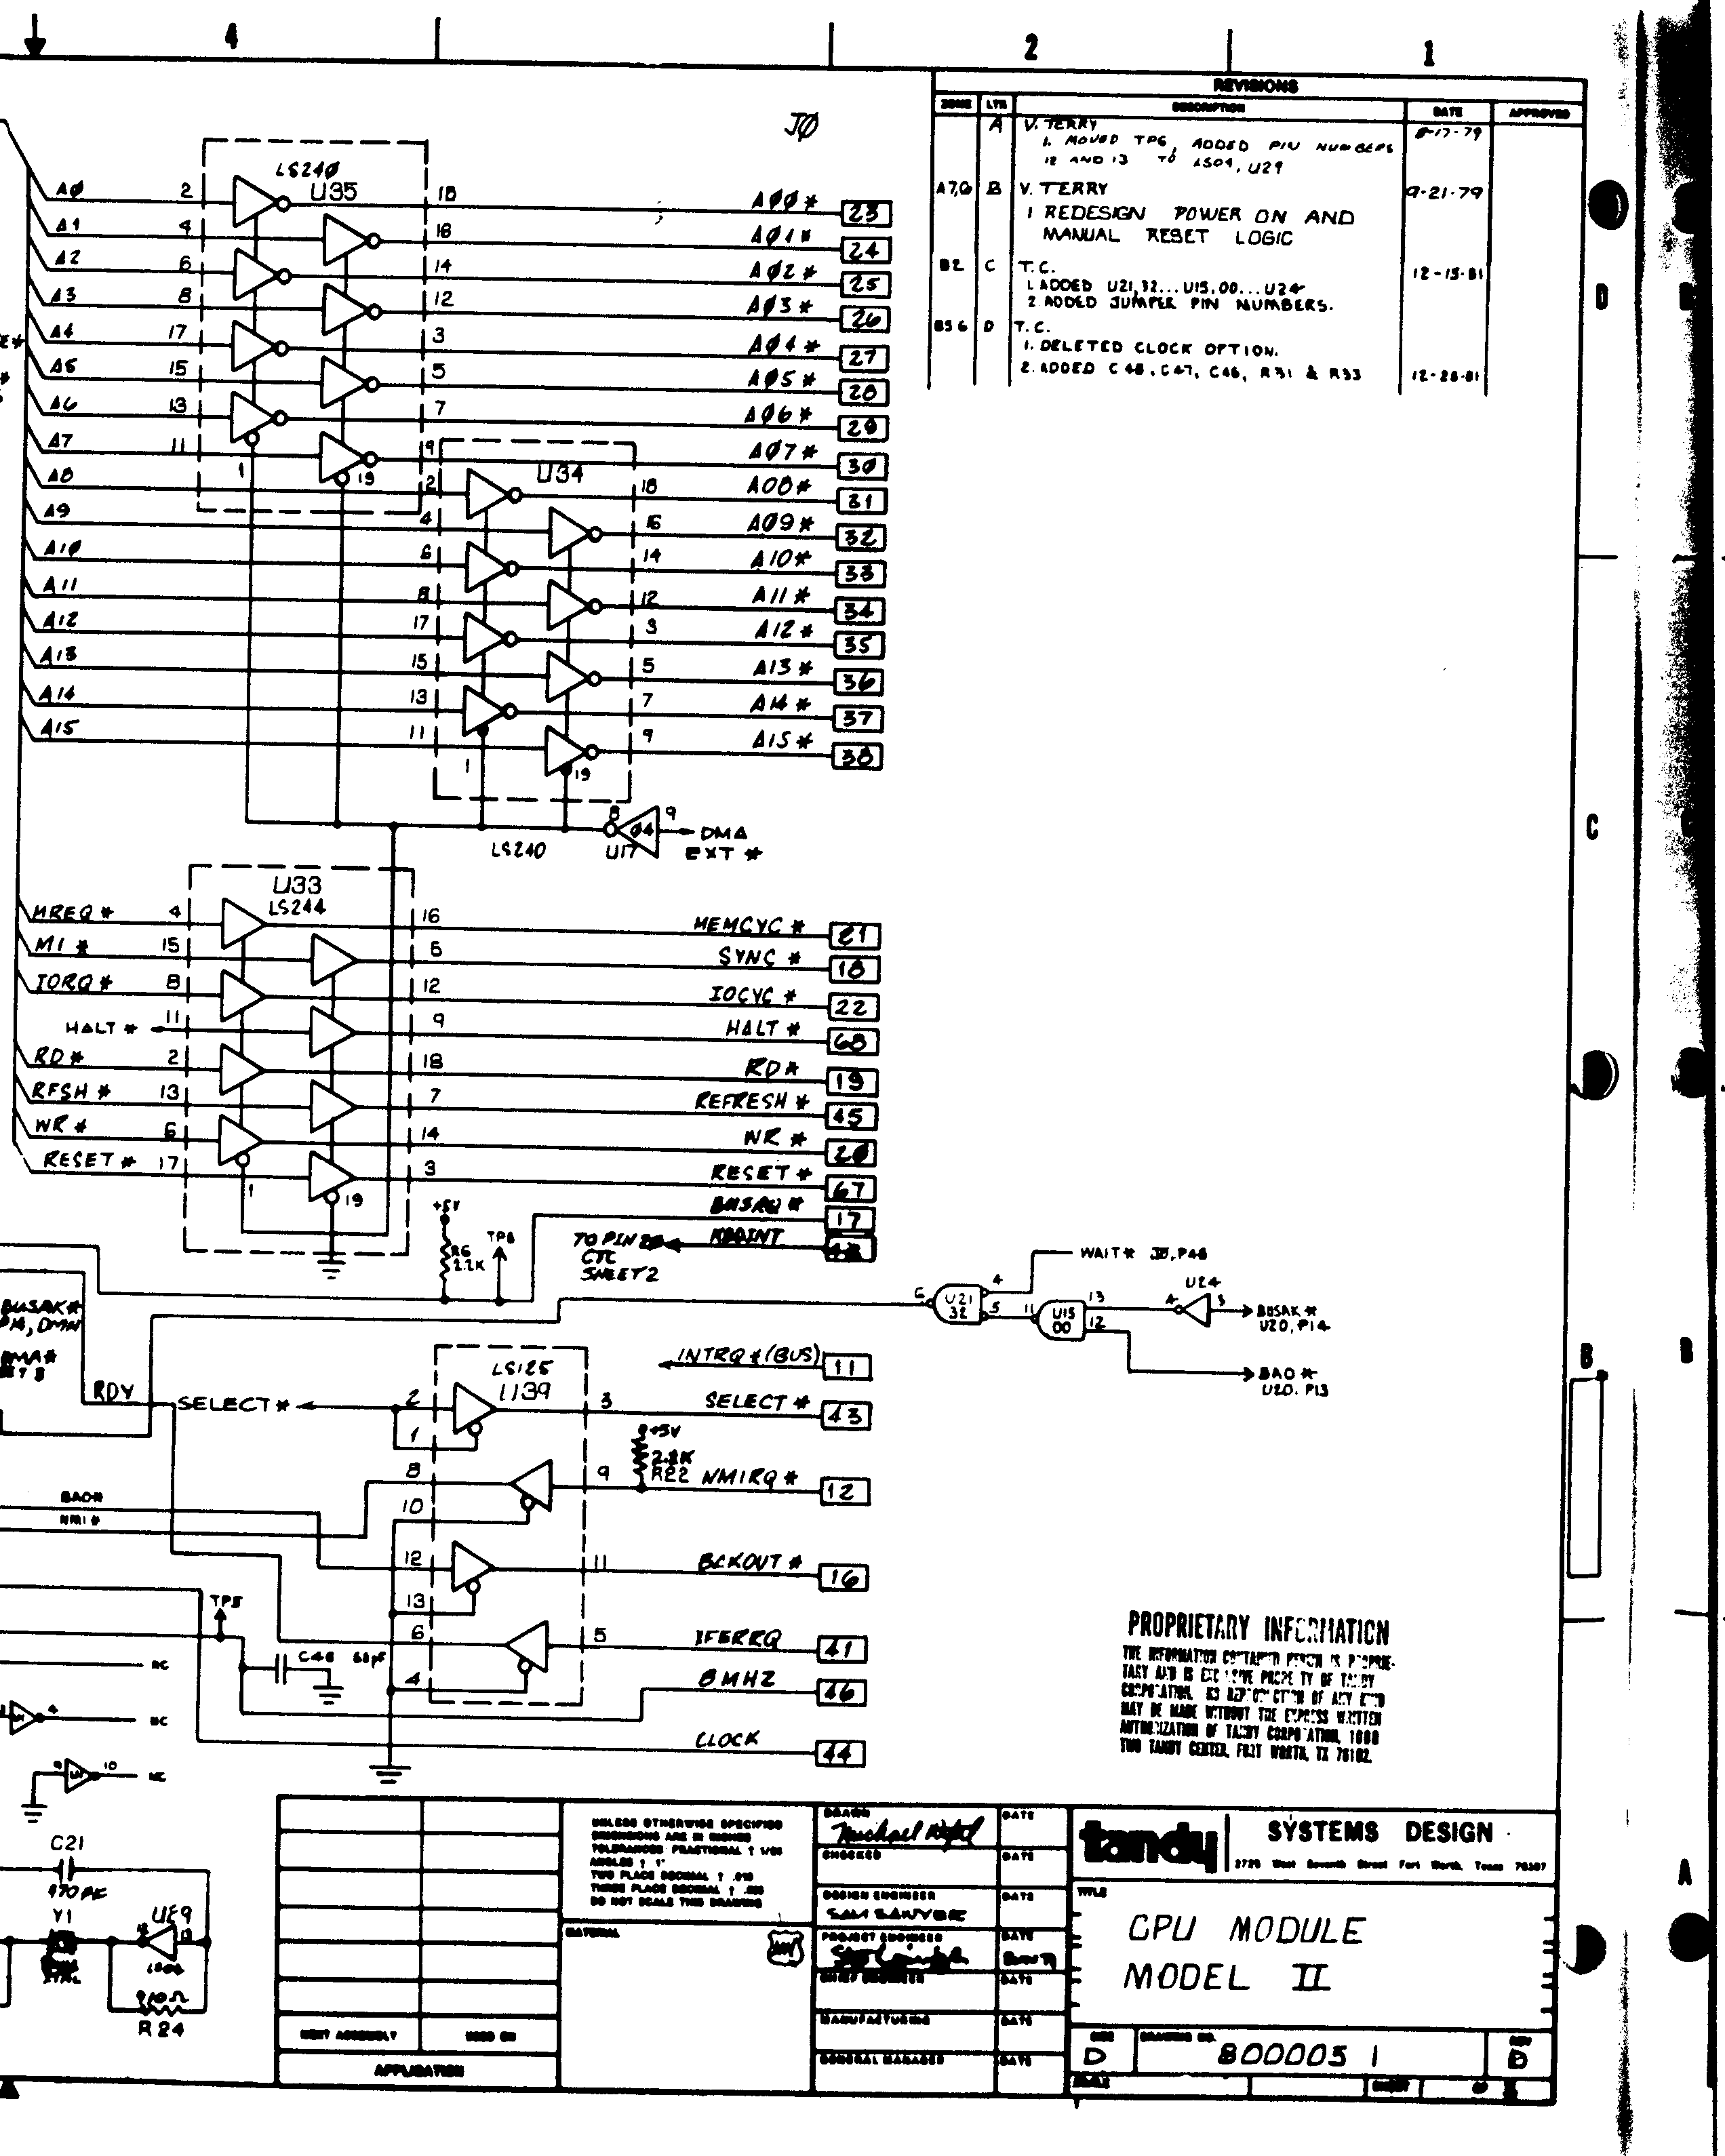 4
2
1
REVISIONS
ZONE LTR DESCRIPTION DATE APPROVED
A V. TERRY 8-17-79
1. MOVED TP6, ADDED PIN NUMBERS
12 AND 13 TO LS04, U29
A7,6 B V. TERRY 9-21-79
1 REDESIGN POWER ON AND
MANUAL RESET LOGIC
B2 C T.C. 12-15-81
1. ADDED U21,32...U15,00...U24
2. ADDED JUMPER PIN NUMBERS.
B5 6 D T.C.
1. DELETED CLOCK OPTION.
2. ADDED C48, C47, C46, R31 & R33 12-28-81
JØ
LS240
U35
AØ 2 18 AØØ* 23
A1 4 16 AØ1* 24
A2 6 14 AØ2* 25
A3 8 12 AØ3* 26
A4 17 3 AØ4* 27
A5 15 5 AØ5* 28
A6 13 7 AØ6* 29
A7 11 9 AØ7* 30
1 19
U34
A8 2 18 A08* 31
A9 4 16 AØ9* 32
A1Ø 6 14 A10* 33
A11 8 12 A11* 34
A12 17 3 A12* 35
A13 15 5 A13* 36
A14 13 7 A14* 37
A15 11 9 A15* 38
1 19
8 04 9 DMA
LS240 U17 EXT *
U33
LS244
MREQ* 4 16 MEMCYC* 21
M1* 15 5 SYNC* 18
IORQ* 8 12 IOCYC* 22
HALT* 11 9 HALT* 68
RD* 2 18 RD* 19
RFSH* 13 7 REFRESH* 45
WR* 6 14 WR* 2Ø
RESET* 17 3 RESET* 67
1 19
BUSRQ* 17
+5V
R6
2.2K
TO PIN
CTC
SHEET 2
WAIT*
6 U21 32 4 5
11 U15 00 13 12
U24
4 3
BUSAK*
U20, P14
BAO*
U20. P13
BUSAK*
RDY
LS125
U39
INTRQ*(BUS) 11
SELECT* 2 3 SELECT* 43
1
+5V
2.2K
R22
8 9 NMIRQ* 12
10
BAO*
NMI*
12 11 BCKOUT* 16
13
6 5 XFERRQ 41
4
TP5
C46 68pF
8MHZ 46
CLOCK 44
NC
4 NC
9 10 NC
C21
Y1
U29
10Ω
R24
PROPRIETARY INFORMATION
THE INFORMATION CONTAINED HEREIN IS PROPRIE-
TARY AND IS EXCLUSIVE PROPERTY OF TANDY
CORPORATION. NO REPRODUCTION OF ANY KIND
MAY BE MADE WITHOUT THE EXPRESS WRITTEN
AUTHORIZATION OF TANDY CORPORATION, 1800
TWO TANDY CENTER, FORT WORTH, TX 76102.
UNLESS OTHERWISE SPECIFIED
DIMENSIONS ARE IN INCHES
TOLERANCES FRACTIONAL ± 1/64
ANGLES ± 1°
TWO PLACE DECIMAL ± .010
THREE PLACE DECIMAL ± .005
DO NOT SCALE THIS DRAWING
MATERIAL
DRAWN DATE
CHECKED DATE
DESIGN ENGINEER DATE
SAM SAWYER
PROJECT ENGINEER DATE
CHIEF ENGINEER DATE
MANUFACTURING DATE
GENERAL MANAGER DATE
NEXT ASSEMBLY USED ON
APPLICATION
tandy SYSTEMS DESIGN
2725 West Seventh Street Fort Worth, Texas 76107
TITLE
CPU MODULE
MODEL II
SIZE DRAWING NO. REV
D 8000051 D
SCALE SHEET
D
C
B
A